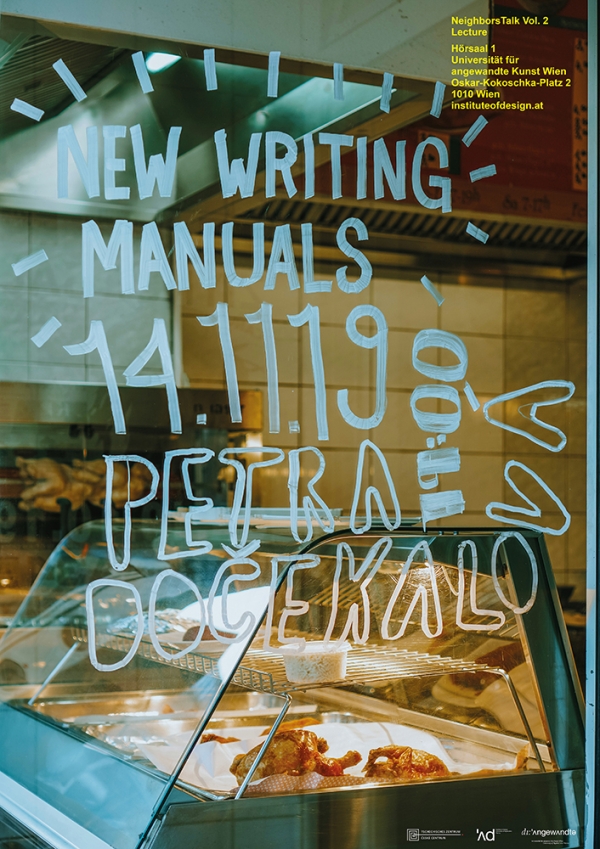 NeighborsTalk Vol. 2
Lecture
Hörsaal 1
Universität für
angewandte Kunst Wien
Oskar-Kokoschka-Platz 2
1010 Wien
instituteofdesign.at
NEW WRITING
MANUALS
14.11.19
PETRA
DOČEKALOVÁ
TSCHECHISCHES ZENTRUM
ČESKÉ CENTRUM
'Ad
di:'Angewandte